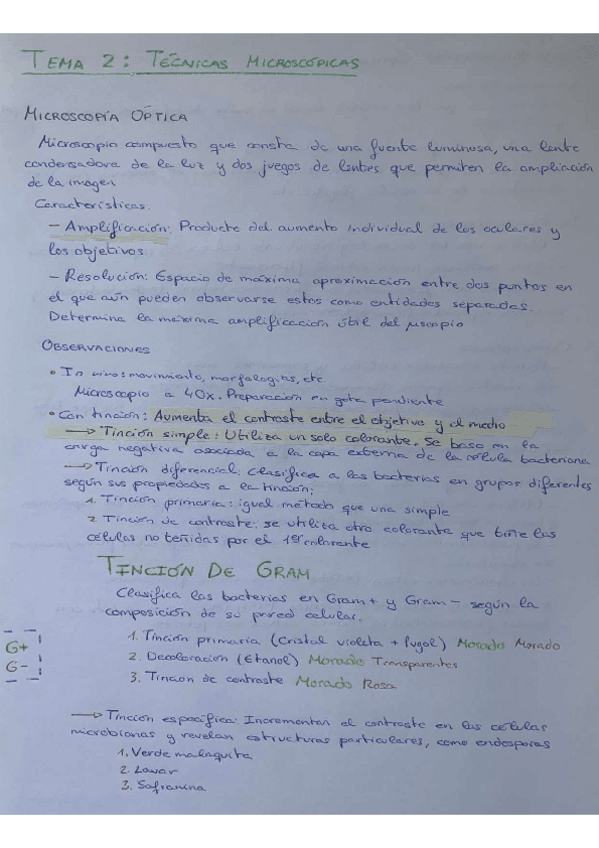 TEMA 2: TÉCNICAS MICROSCÓPICAS
MICROSCOPÍA ÓPTICA
Microscopio compuesto que consta de una fuente luminosa, una lente
condensadora de la luz y dos juegos de lentes que permiten la ampliación
de la imagen
Características.
- Amplificación: Producto del aumento individual de los oculares y
los objetivos.
- Resolución: Espacio de máxima aproximación entre dos puntos en
el que aún pueden observarse estos como entidades separadas.
Determina la máxima amplificación útil del µscopio
OBSERVACIONES
• In vivo: movimiento, morfologías, etc
Microscopio a 40x. Preparación en gota pendiente
• Con tinción: Aumenta el contraste entre el objetivo y el medio
→ Tinción simple: Utiliza un solo colorante. Se basa en la
carga negativa asociada a la capa externa de la célula bacteriana
→ Tinción diferencial: Clasifica a las bacterias en grupos diferentes
según sus propiedades a la tinción:
1. Tinción primaria: igual método que una simple
2 Tinción de contraste: se utiliza otro colorante que tiñe las
células no teñidas por el 1er colorante
TINCIÓN DE GRAM
Clasifica las bacterias en Gram+ y Gram- según la
composición de su pared celular.
G+
G-
1. Tinción primaria (Cristal violeta + lugol) Morado Morado
2. Decoloración (Etanol) Morado Transparentes
3. Tinción de contraste Morado Rosa
→ Tinción específica: Incrementan el contraste en las células
microbianas y revelan estructuras particulares, como endosporas
1. Verde malaquita
2. Lavar
3. Safranina